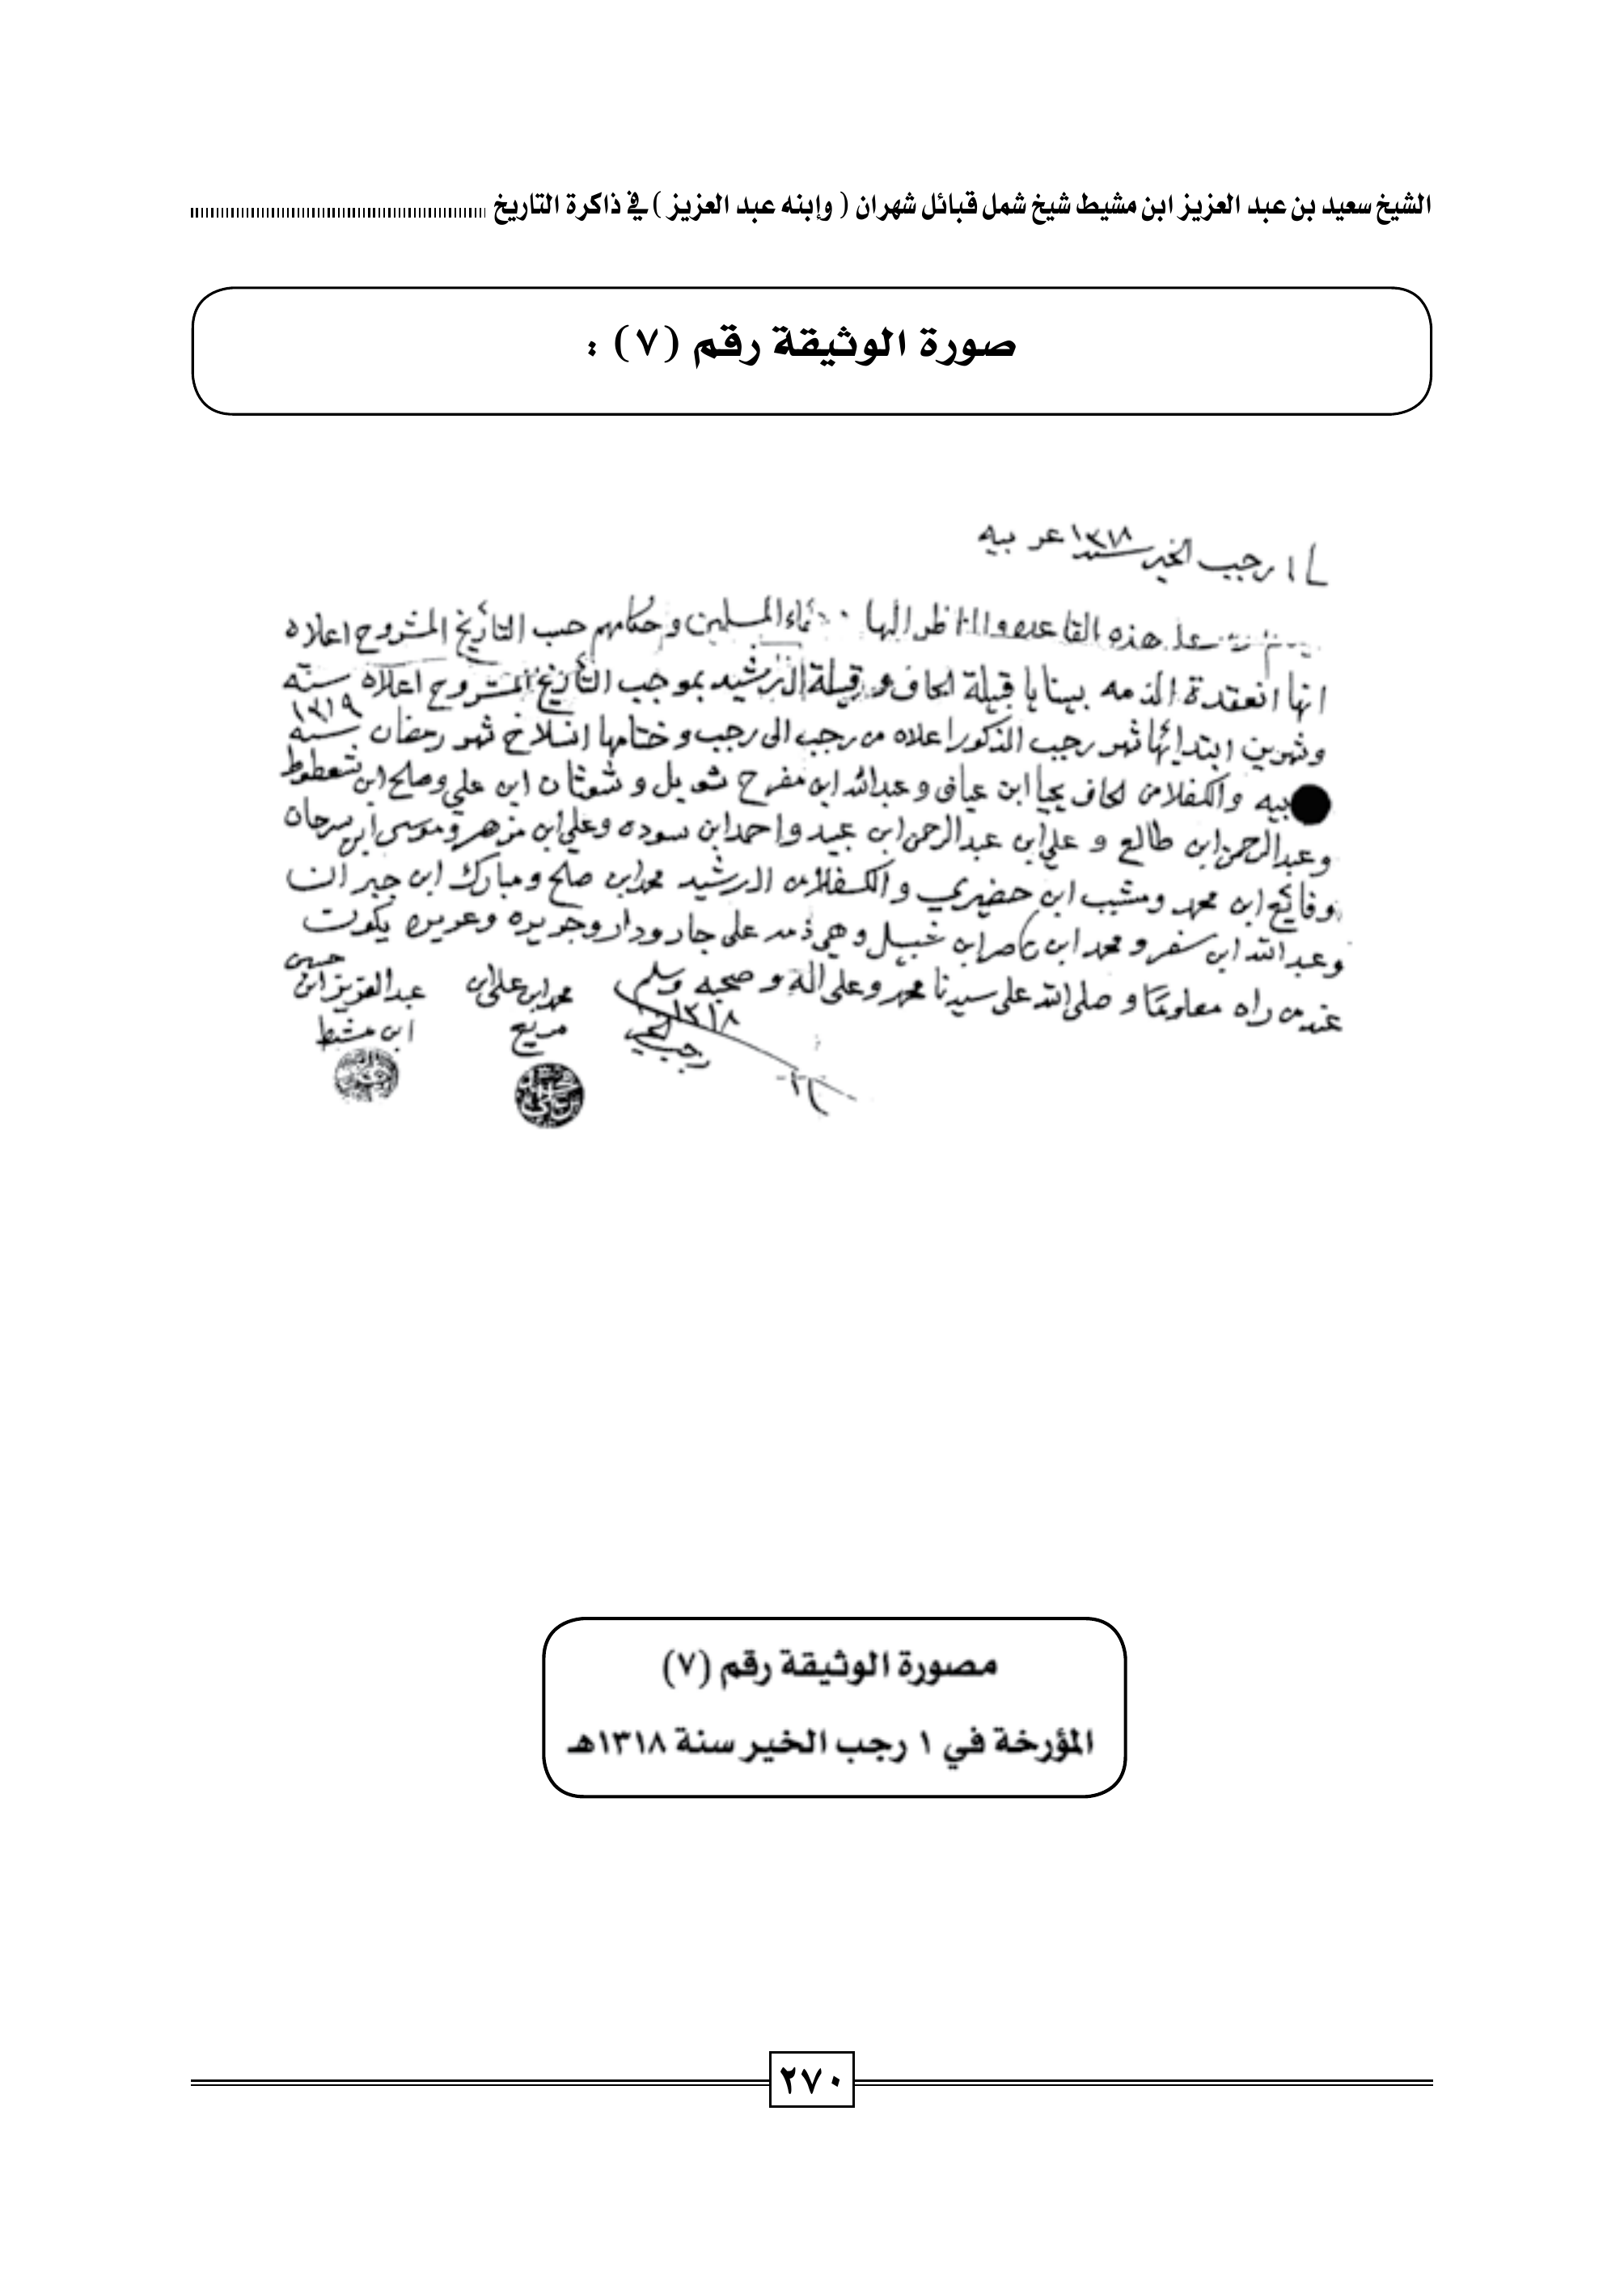 الشيخ سعيد بن عبد العزيز ابن مشيط شيخ شمل قبائل شهران ( وإبنه عبد العزيز ) في ذاكرة التاريخ
صورة الوثيقة رقم (٧) :
١ رجب الخير سنة ١٣١٨ عربيه
على هذه القاعده والناظر اليها المسلمين وحكامهم حسب التأريخ المشروح اعلاه
انها انعقدة الذمه بيننا يا قبيلة لحاف و قبيلة الرشيد بموجب التأريخ المشروح اعلاه سنه
وشهرين ابتدائها شهر رجب المذكور اعلاه من رجب الى رجب وختامها انسلاخ شهر رمضان سنه ١٣١٩
والكفلا من لحاف يحيا ابن عياف وعبدالله ابن مفرح شويل وشوثان ابن علي وصلح ابن شعطوط
وعبدالرحمن ابن طالع و علي ابن عبدالرحمن ابن عبيد واحمد ابن سوده وعلي ابن مزهر وموسى ابن سرحان
وفايع ابن محمد ومشبب ابن حضيري والكفلا من الرشيد محمد ابن صلح ومبارك ابن جبران
وعبد الله ابن سفر و محمد ابن ناصر ابن غبيل وهي ذمه على جار ودار وجويره وعويره يكون
عند من راه معلومًا و صلى الله على سيدنا محمد وعلى اله و صحبه وسلم
١٣١٨
رجب الخير
١
محمد ابن علي ابن
مريع
عبدالعزيز ابن حسين
ابن مشيط
مصورة الوثيقة رقم (٧)
المؤرخة في ١ رجب الخير سنة ١٣١٨هـ
٢٧٠